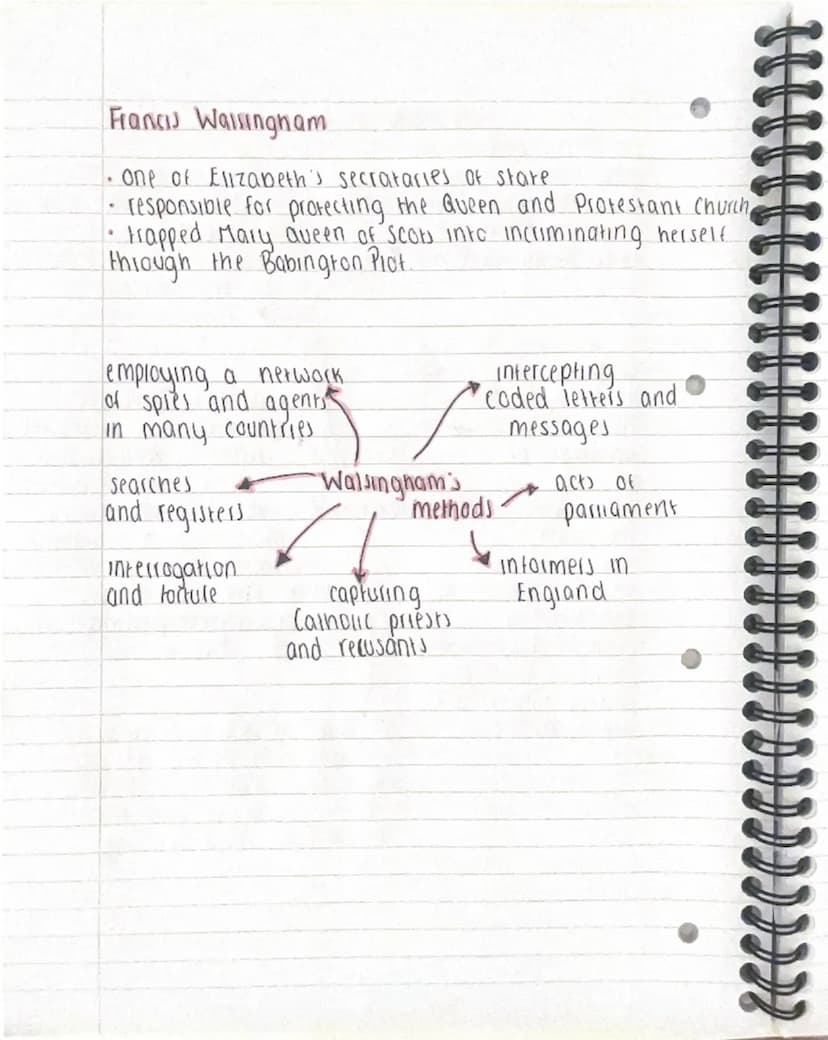 Francis Walsingham
· one of Elizabeth's secrataries of state
· responsible for protecting the Queen and Protestant Church
· trapped Mary Queen of Scots into incriminating herself
through the Babington Plot.
employing a network
of spies and agents
in many countries
intercepting
coded letters and
messages
searches
and registers
Walsingham's
methods
acts of
parliament
interrogation
and torture
capturing
Catholic priests
and recusants
informers in
England